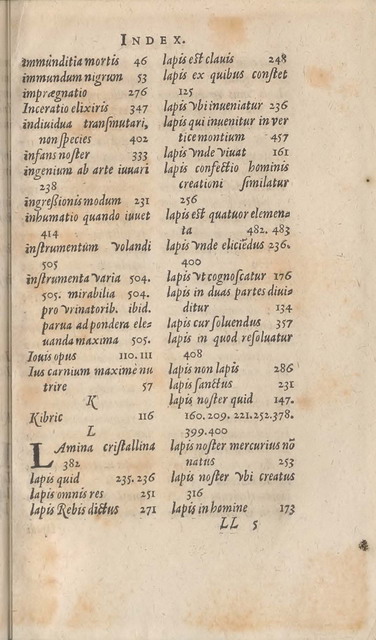 INDEX.
immunditia mortis 46
immundum nigrum 53
imprægnatio 276
Inceratio elixiris 347
indiuidua transmutari,
non species 402
infans noster 333
ingenium ab arte iuuari
238
ingressionis modum 231
inhumatio quando iuuet
414
instrumentum volandi
505
instrumenta varia 504.
505. mirabilia 504.
pro vrinatorib. ibid.
parua ad pondera ele-
uanda maxima 505.
Iouis opus 110.111
Ius carnium maxime nu
trire 57
K
Kibric 116
L
LAmina cristallina
382
lapis quid 235.236
lapis omnis res 251
lapis Rebis dictus 271
lapis est clauis 248
lapis ex quibus constet
125
lapis vbi inueniatur 236
lapis qui inuenitur in ver
tice montium 457
lapis vnde viuat 161
lapis confectio hominis
creationi similatur
256
lapis est quatuor elemen-
ta 482.483
lapis vnde eliciēdus 236.
400
lapis vt cognoscatur 176
lapis in duas partes diui-
ditur 134
lapis cur soluendus 357
lapis in quod resoluatur
408
lapis non lapis 286
lapis sanctus 231
lapis noster quid 147.
160.209.221.252.378.
399.400
lapis noster mercurius nō
natus 253
lapis noster vbi creatus
316
lapis in homine 173
LL 5